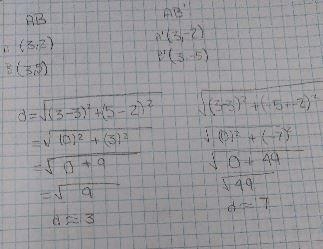 AB
A (3,2)
B (3,5)
d = √(3-3)² + (5-2)²
= √(0)² + (3)²
= √0 + 9
= √9
d = 3
AB'
A'(3,-2)
B'(3,-5)
√(3-3)² + (-5-2)²
√(0)² + (-7)²
√0 + 49
√49
d = 7